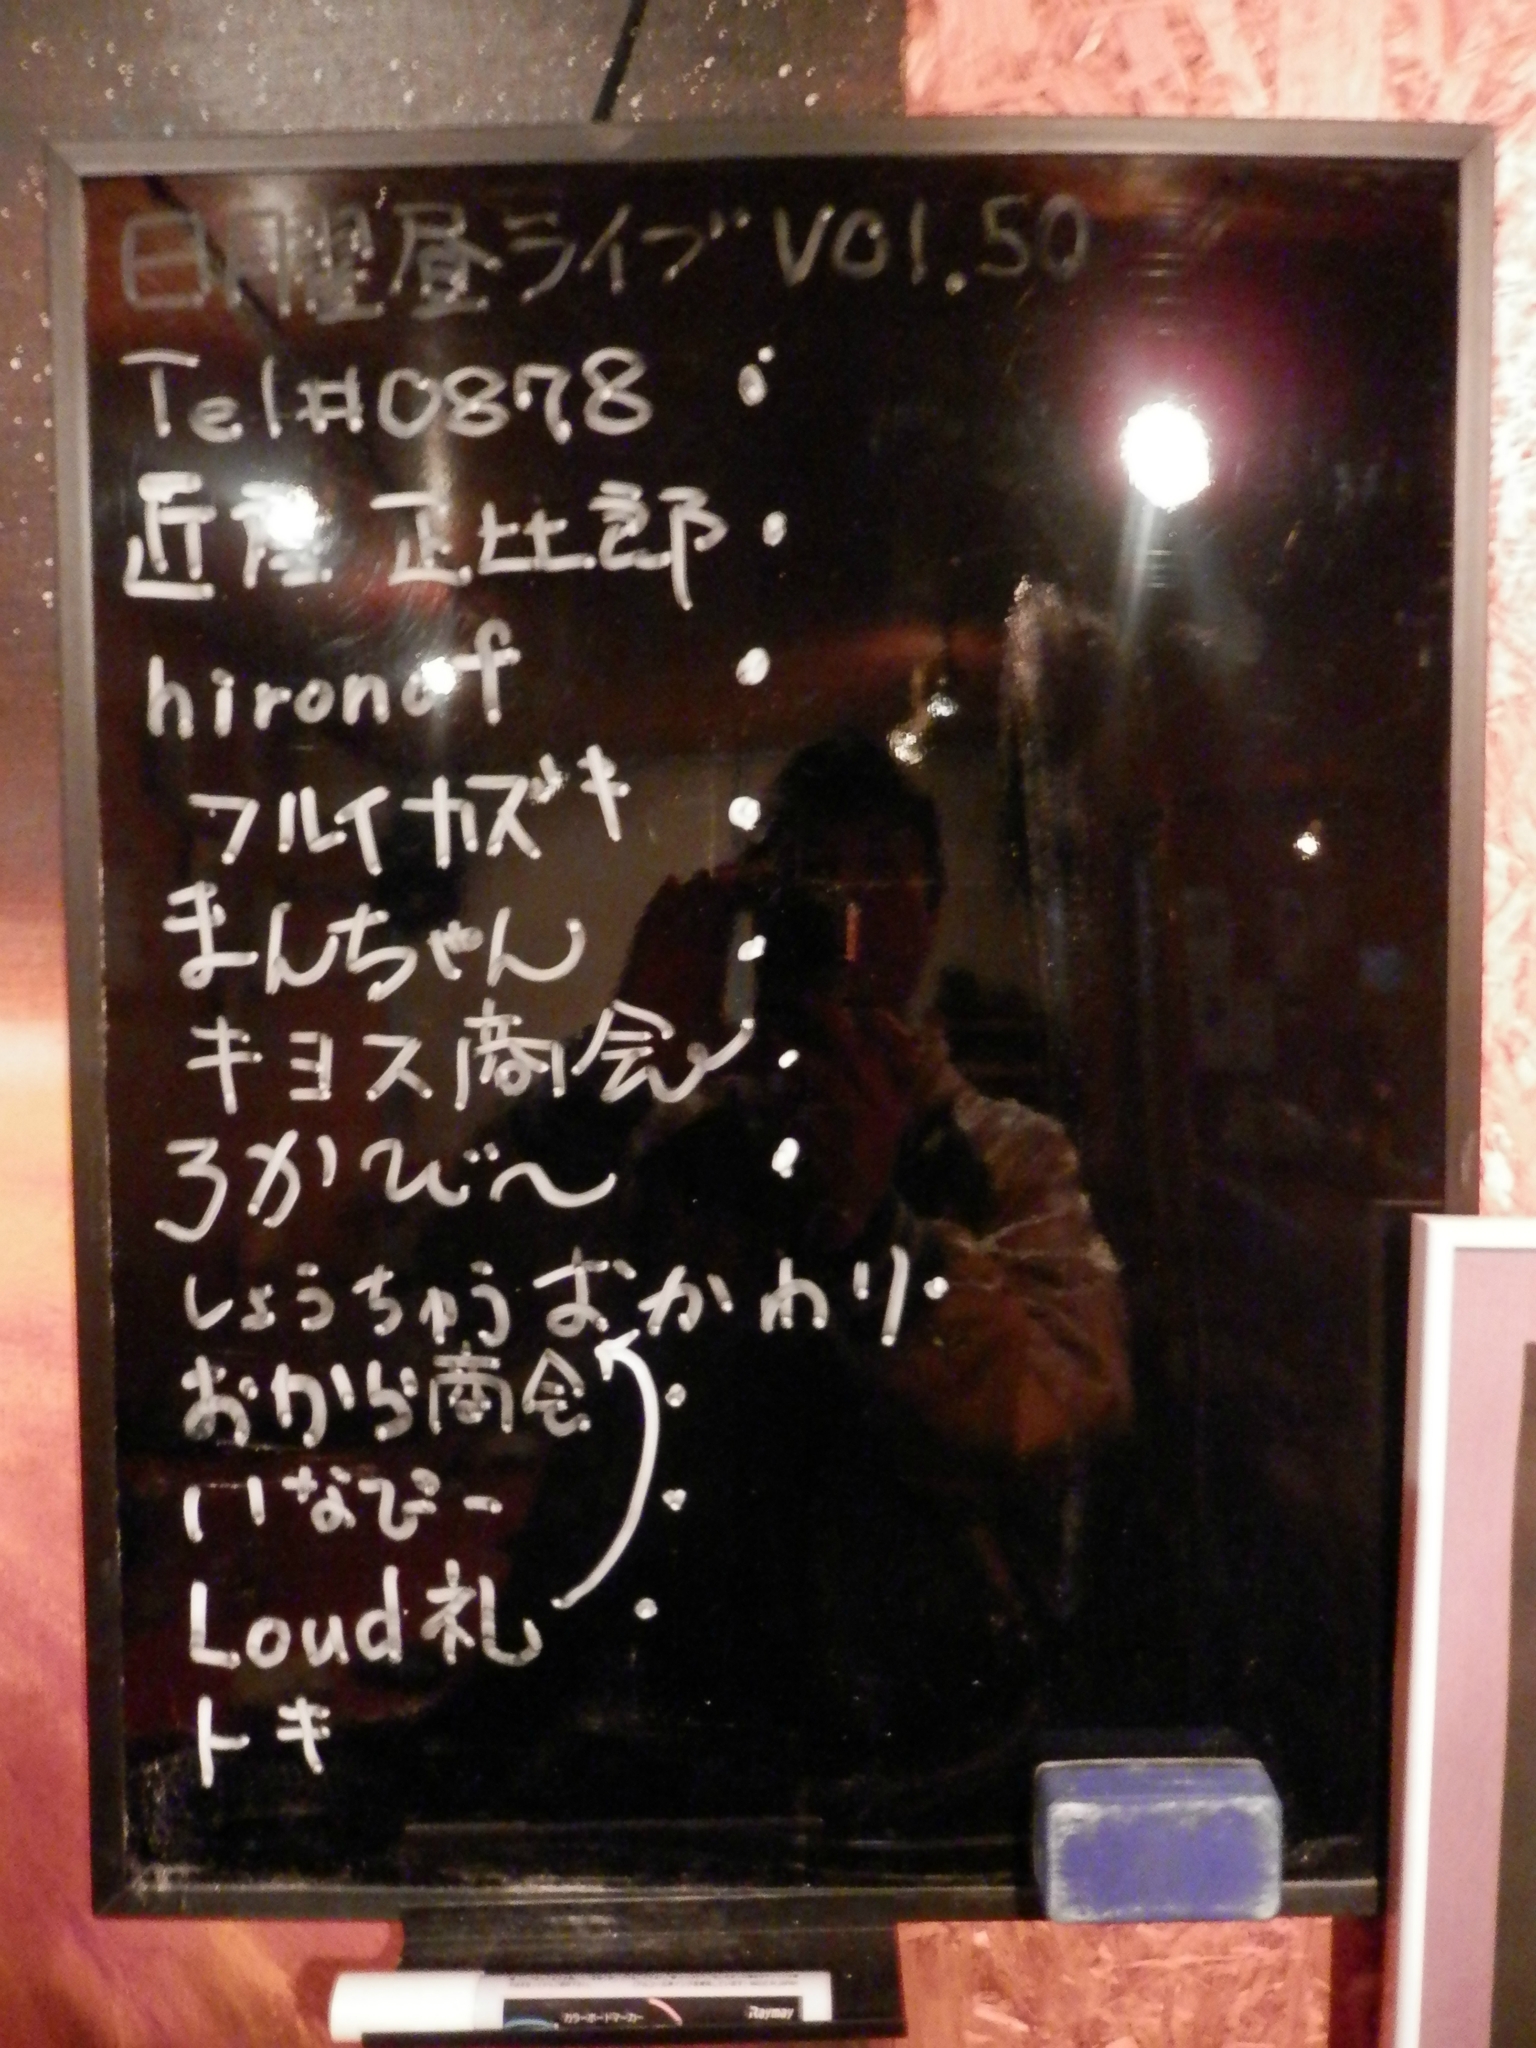 日曜昼ライブ VOl.50
Tel#0878
近 正比郎
hironof
フルイカズキ
まんちゃん
キヨス商会
ろかび〜
しょうちゅうおかわり
おから商会
いなびー
Loud礼
トキ
カラーボードマーカー Raymay